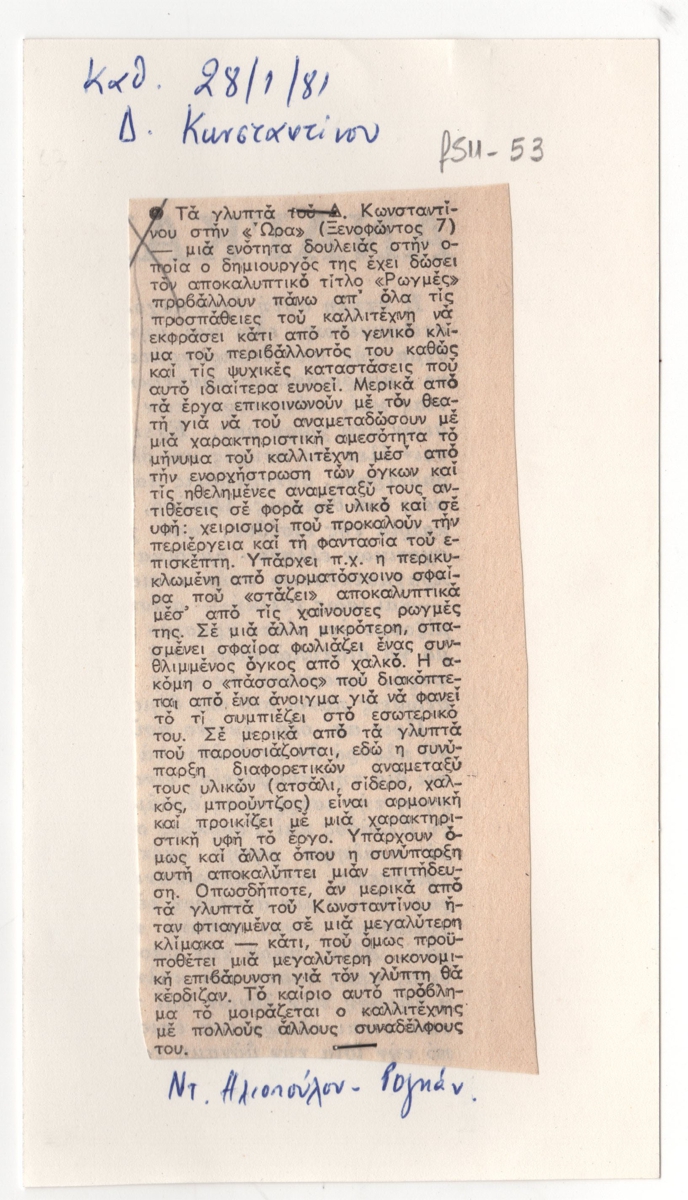 Καθ. 28/1/81
Δ. Κωνσταντίνου
fS11-53
● Τά γλυπτά τού Δ. Κωνσταντί-
νου στήν «Ώρα» (Ξενοφώντος 7)
— μιά ενότητα δουλειάς στήν ο-
ποία ο δημιουργός της έχει δώσει
τόν αποκαλυπτικό τίτλο «Ρωγμές»
προβάλλουν πάνω απ' όλα τίς
προσπάθειες τού καλλιτέχνη νά
εκφράσει κάτι από τό γενικό κλί-
μα τού περιβάλλοντός του καθώς
καί τίς ψυχικές καταστάσεις πού
αυτό ιδιαίτερα ευνοεί. Μερικά από
τά έργα επικοινωνούν μέ τόν θεα-
τή γιά νά τού αναμεταδώσουν μέ
μιά χαρακτηριστική αμεσότητα τό
μήνυμα τού καλλιτέχνη μέσ' από
τήν ενορχήστρωση τών όγκων καί
τίς ηθελημένες αναμεταξύ τους αν-
τιθέσεις σέ φορά σέ υλικό καί σέ
υφή: χειρισμοί πού προκαλούν τήν
περιέργεια καί τή φαντασία τού ε-
πισκέπτη. Υπάρχει π.χ. η περικυ-
κλωμένη από συρματόσχοινο σφαί-
ρα πού «στάζει» αποκαλυπτικά
μέσ' από τίς χαίνουσες ρωγμές
της. Σέ μιά άλλη μικρότερη, σπα-
σμένει σφαίρα φωλιάζει ένας συν-
θλιμμένος όγκος από χαλκό. Η α-
κόμη ο «πάσσαλος» πού διακόπτε-
ται από ένα άνοιγμα γιά νά φανεί
τό τί συμπιέζει στό εσωτερικό
του. Σέ μερικά από τά γλυπτά
πού παρουσιάζονται, εδώ η συνύ-
παρξη διαφορετικών αναμεταξύ
τους υλικών (ατσάλι, σίδερο, χαλ-
κός, μπρούντζος) είναι αρμονική
καί προικίζει μέ μιά χαρακτηρι-
στική υφή τό έργο. Υπάρχουν ό-
μως καί άλλα όπου η συνύπαρξη
αυτή αποκαλύπτει μιάν επιτήδευ-
ση. Οπωσδήποτε, άν μερικά από
τά γλυπτά τού Κωνσταντίνου ή-
ταν φτιαγμένα σέ μιά μεγαλύτερη
κλίμακα — κάτι, πού όμως προϋ-
ποθέτει μιά μεγαλύτερη οικονομι-
κή επιβάρυνση γιά τόν γλύπτη θά
κέρδιζαν. Τό καίριο αυτό πρόβλη-
μα τό μοιράζεται ο καλλιτέχνης
μέ πολλούς άλλους συναδέλφους
του.
Ντ. Ηλιοπούλου - Ρογκάν.